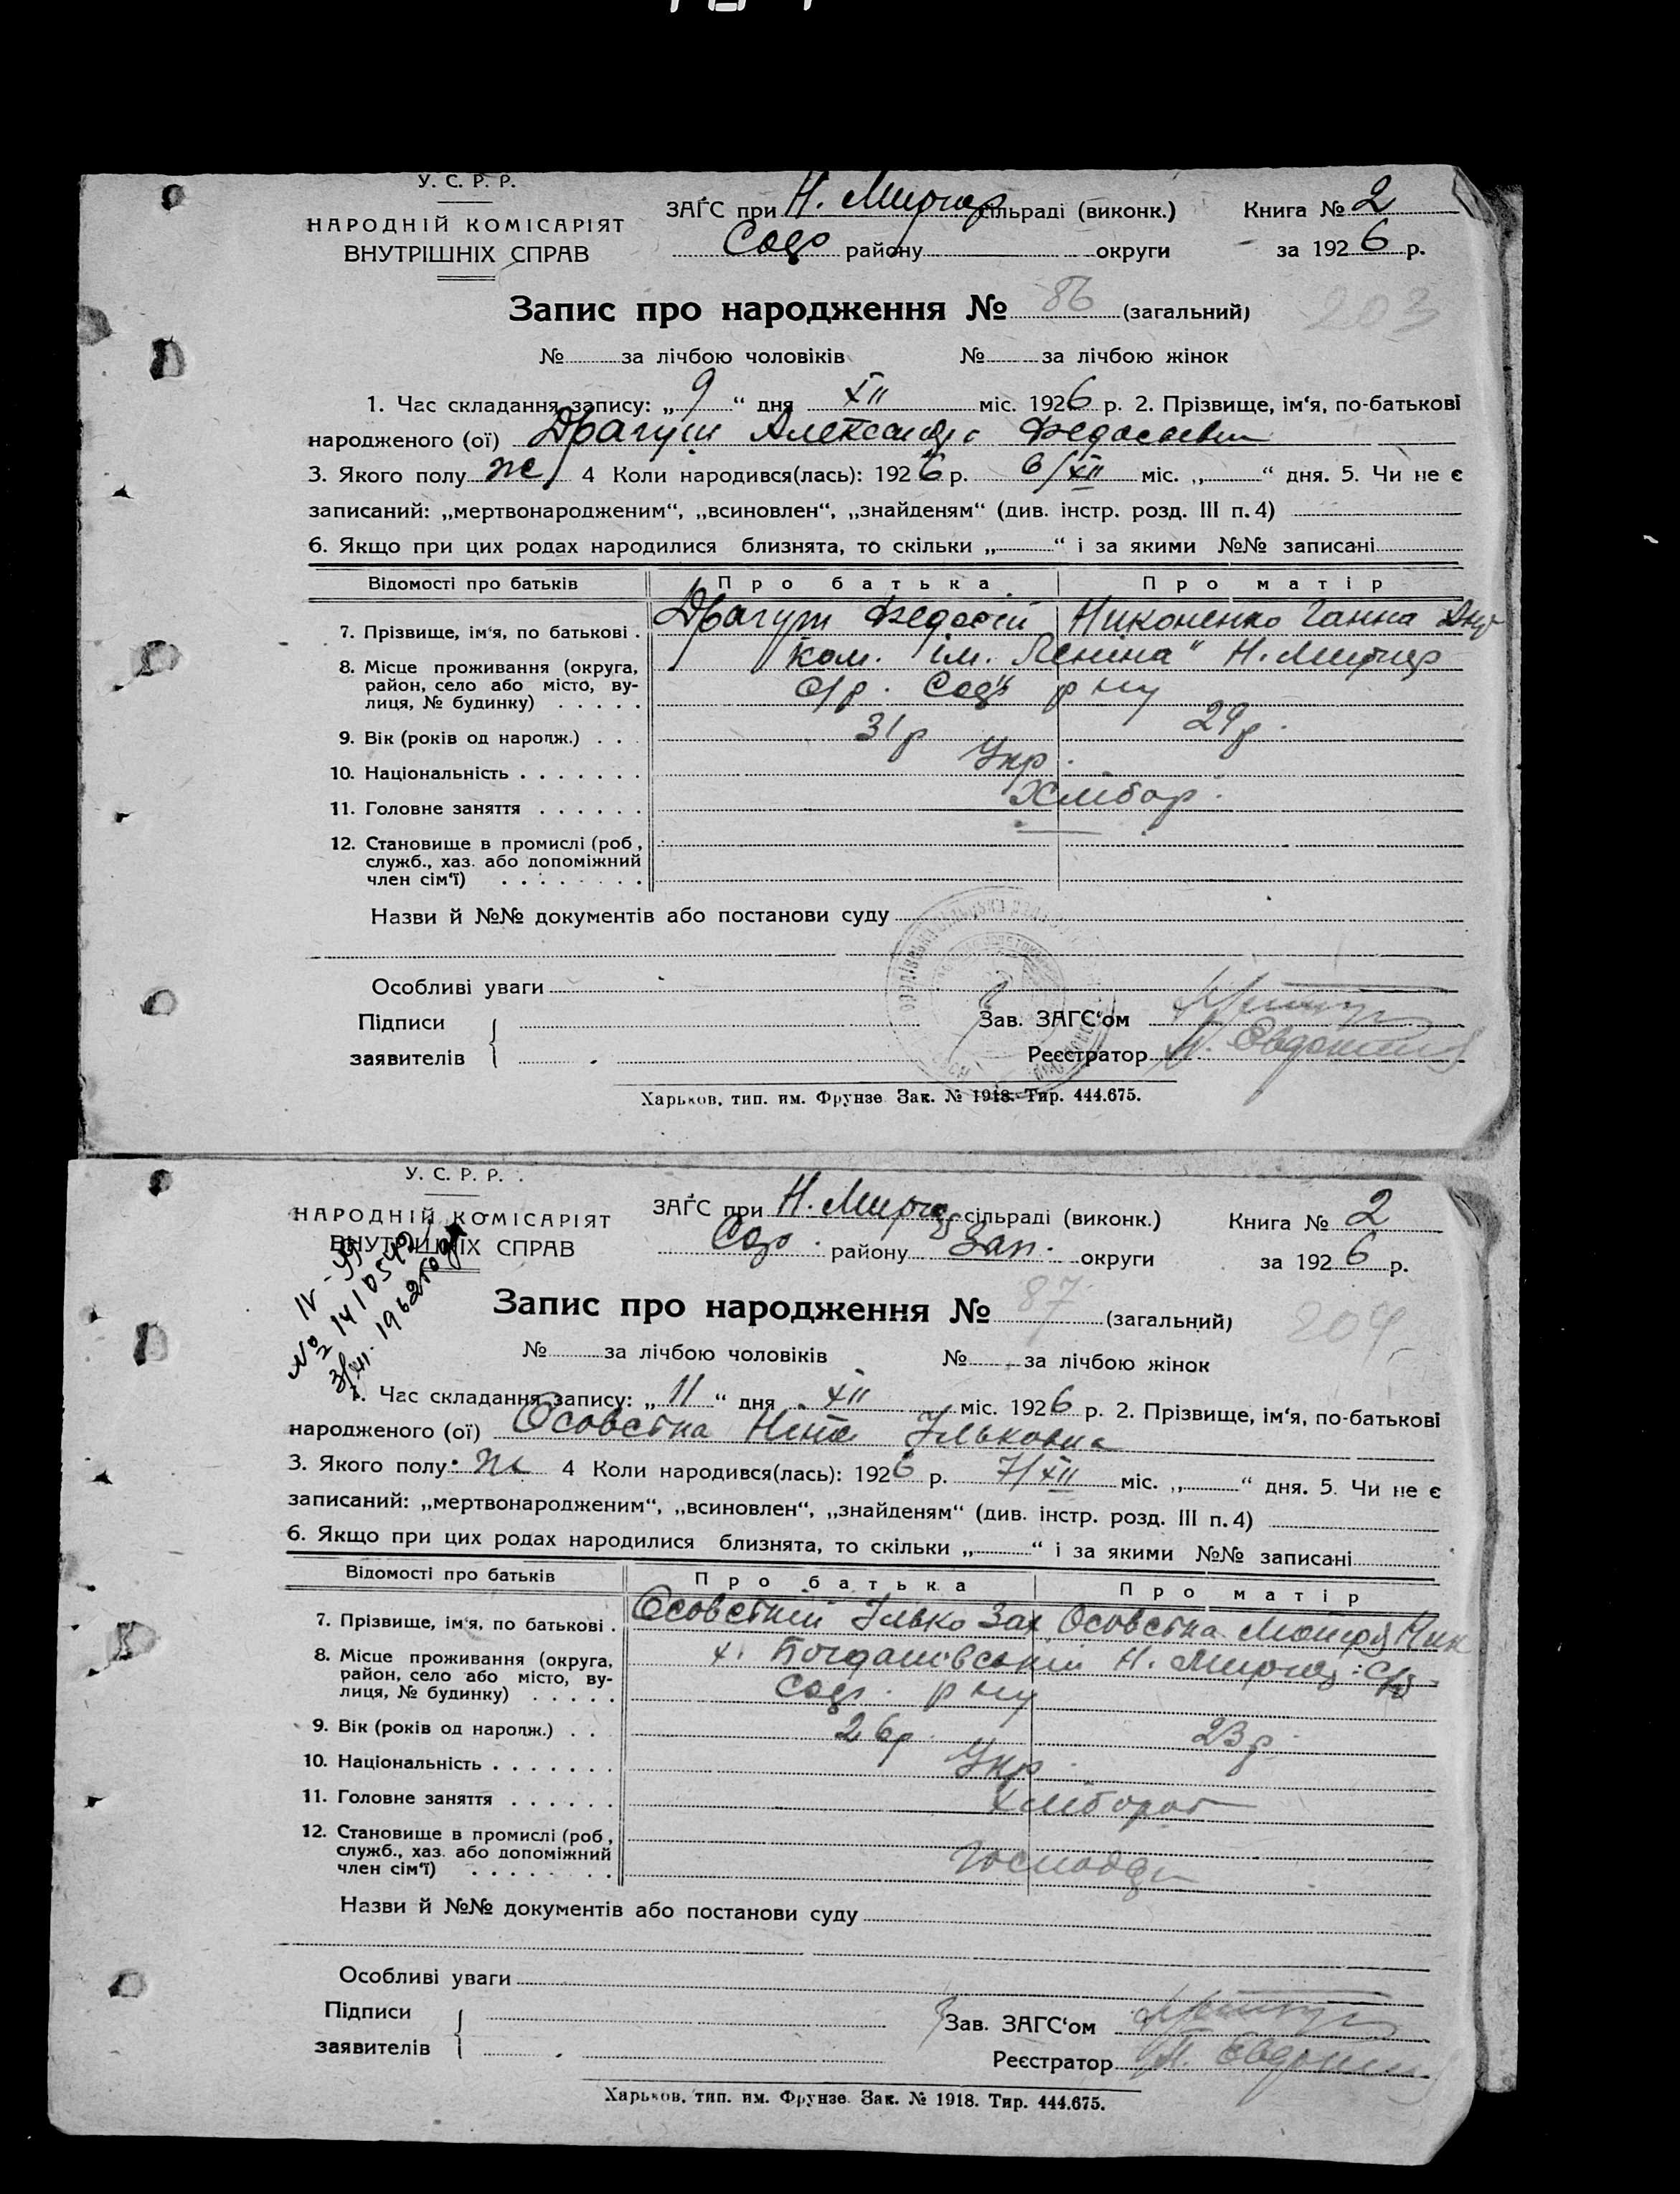 У. С. Р. Р.
НАРОДНІЙ КОМІСАРІЯТ
ВНУТРІШНІХ СПРАВ
ЗАҐС при Н. Миргор сільраді (виконк.) Книга № 2
району округи за 1926 р.
Запис про народження № 86 (загальний) 203
№ за лічбою чоловіків № за лічбою жінок
1. Час складання запису: „9“ дня XII міс. 1926 р. 2. Прізвище, ім‘я, по-батькові
народженого (ої)
3. Якого полу ж 4 Коли народився(лась): 1926 р. 6/XII міс. „ “ дня. 5. Чи не є
записаний: „мертвонародженим“, „всиновлен“, „знайденям“ (див. інстр. розд. III п. 4)
6. Якщо при цих родах народилися близнята, то скільки „ “ і за якими №№ записані
Відомості про батьків Про батька Про матір
7. Прізвище, ім‘я, по батькові . Федосій Никоненко Ганна
8. Місце проживання (округа, ком. ім. Леніна" Н. Миргор
район, село або місто, ву-
лиця, № будинку) . . . . . с/р. р ну
9. Вік (років од народж.) . . . 31 р 29 р.
10. Національність . . . . . . . Укр.
11. Головне заняття . . . . . . Хлібор.
12. Становище в промислі (роб,
служб., хаз. або допоміжний
член сім‘ї) . . . . . . . .
Назви й №№ документів або постанови суду
Особливі уваги
Підписи
заявителів
Зав. ЗАГС‘ом
Реєстратор
Харьков, тип. им. Фрунзе Зак. № 1918. Тир. 444.675.
У. С. Р. Р.
НАРОДНІЙ КОМІСАРІЯТ
ВНУТРІШНІХ СПРАВ
ЗАҐС при Н. Миргор сільраді (виконк.) Книга № 2
району Зап. округи за 1926 р.
IV-
№ 1410542
1962 года
Запис про народження № 87 (загальний) 204
№ за лічбою чоловіків № за лічбою жінок
1. Час складання запису: „11“ дня XII міс. 1926 р. 2. Прізвище, ім‘я, по-батькові
народженого (ої) Осовстна Ніна Ільковна
3. Якого полу ж 4 Коли народився(лась): 1926 р. 7/XII міс. „ “ дня. 5. Чи не є
записаний: „мертвонародженим“, „всиновлен“, „знайденям“ (див. інстр. розд. III п. 4)
6. Якщо при цих родах народилися близнята, то скільки „ “ і за якими №№ записані
Відомості про батьків Про батька Про матір
7. Прізвище, ім‘я, по батькові . Осовстній Ілько Зах Осовстна Мотря Ник
8. Місце проживання (округа, х. Н. Миргор с/р
район, село або місто, ву-
лиця, № будинку) . . . . . р ну
9. Вік (років од народж.) . . 26 р. 23 р.
10. Національність . . . . . . . Укр.
11. Головне заняття . . . . . . Хлібороб
12. Становище в промислі (роб,
служб., хаз. або допоміжний
член сім‘ї) . . . . . . . .
Назви й №№ документів або постанови суду
Особливі уваги
Підписи
заявителів
Зав. ЗАГС‘ом
Реєстратор
Харьков, тип. им. Фрунзе Зак. № 1918. Тир. 444.675.